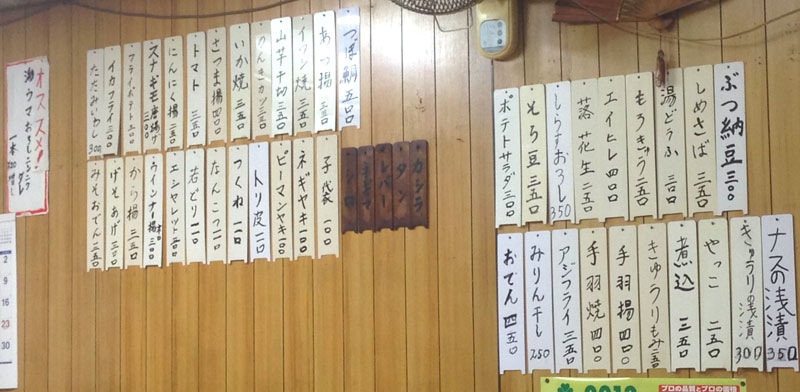 つぼ鯛 五五〇
あつ揚 三五〇
イワシ焼 三五〇
山芋千切 三五〇
いか焼 三五〇
さつま揚 四〇〇
トマト 三五〇
にんにく揚 三五〇
スナギモ唐揚げ 三〇〇
フライポテト 三〇〇
イカフライ 三五〇
たたみいわし 300
子袋 一〇〇
ネギヤキ 一〇〇
ピーマンヤキ 一〇〇
トリ皮 一一〇
つくね 一一〇
なんこつ 一一〇
若どり 一一〇
エシャレット 三〇〇
ウインナー揚 三〇〇
から揚 三五〇
げそあげ 三〇〇
みそおでん 三五〇
カシラ
タン
レバー
シロ
オススメ!
ぶつ納豆 三五〇
しめさば 三五〇
湯どうふ 三〇〇
もろきゅう 三五〇
エイヒレ 四〇〇
落花生 二五〇
しらすおろし 350
そら豆 三五〇
ポテトサラダ 三〇〇
ナスの浅漬 350
きゅうりの浅漬 300
やっこ 二五〇
煮込 三五〇
きゅうりもみ 三五〇
手羽揚 四〇〇
手羽焼 四〇〇
アジフライ 三五〇
みりん干し 250
おでん 四五〇
2
9
16
23
30
2012
プロの品質とプロの価格